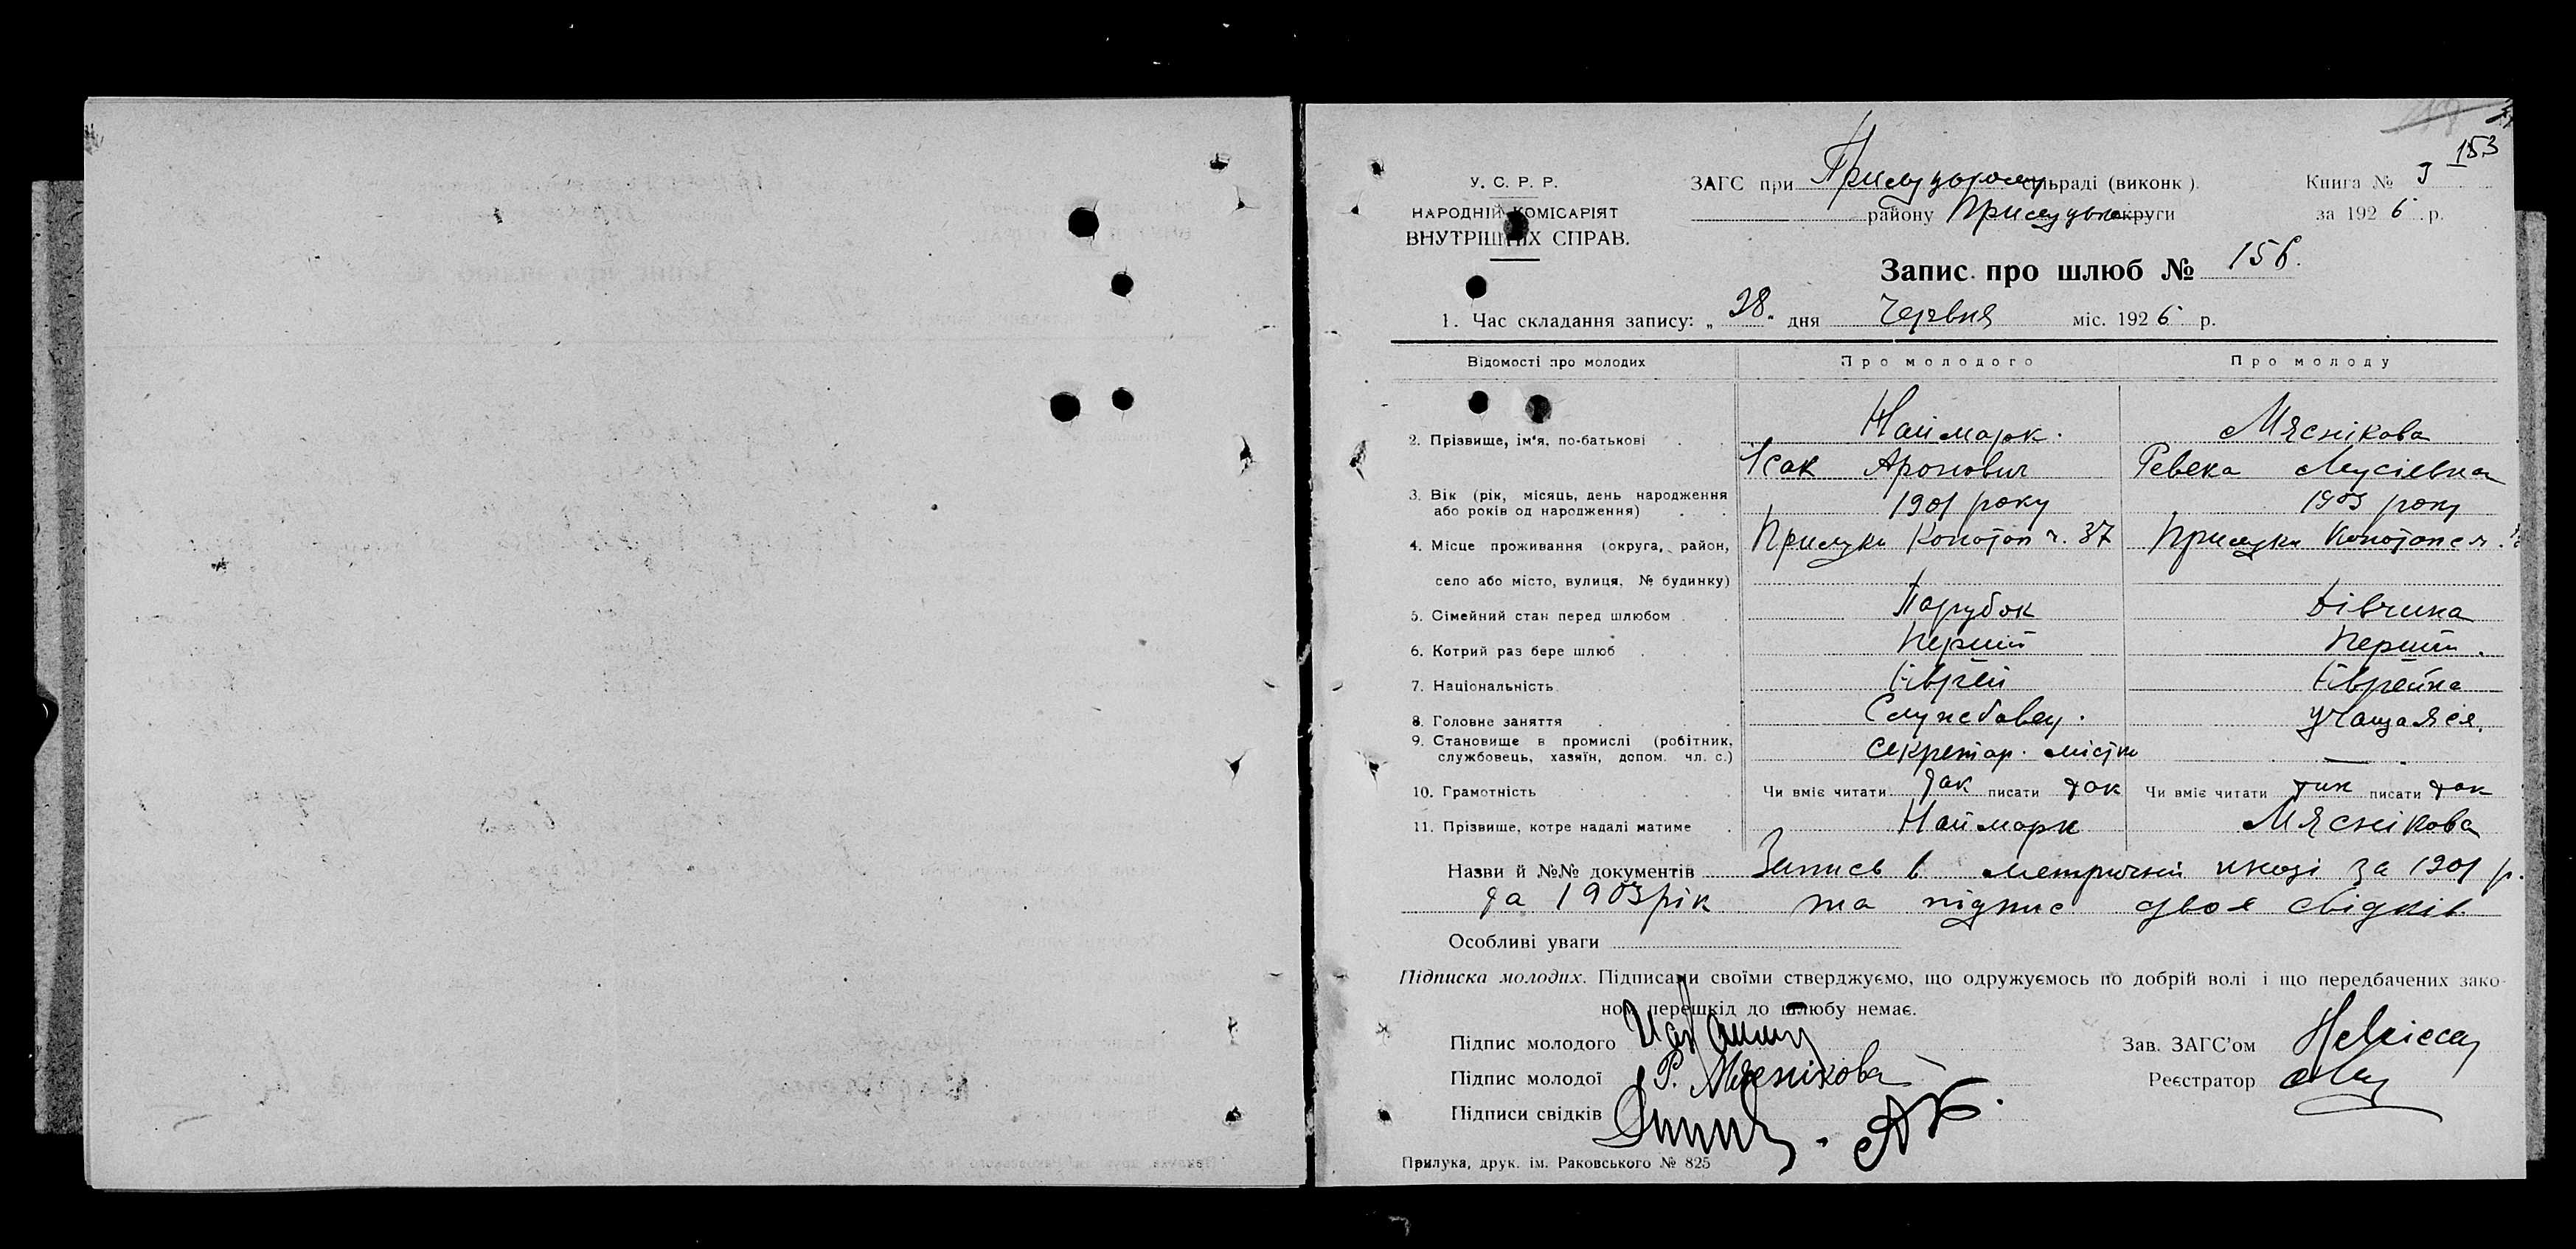 153
У. С. Р. Р.
НАРОДНІЙ КОМІСАРІЯТ
ВНУТРІШНІХ СПРАВ.
ЗАГС при сільраді (виконк).
району округи
Книга № 3
за 1926 р.
Запис про шлюб № 156.
1. Час складання запису: „28" дня Червня міс. 1926 р.
Відомості про молодих Про молодого Про молоду
2. Прізвище, ім'я, по-батькові Наймарк. Мяснікова
Ісак Аронович Ревека Мусіевна
3. Вік (рік, місяць, день народження 1901 року 1903 року
або років од народження)
4. Місце проживання (округа, район, Прилуки Конотоп ч. 37 Прилуки
село або місто, вулиця, № будинку)
5. Сімейний стан перед шлюбом Парубок Дівчина
6. Котрий раз бере шлюб Перший Перший.
7. Національність Єврей Єврейка
8. Головне заняття Службовец. учащаяся.
9. Становище в промислі (робітник, секретар.
службовець, хазяїн, допом. чл. с.)
10. Грамотність Чи вміє читати так писати так Чи вміє читати так писати так
11. Прізвище, котре надалі матиме Наймарк Мяснікова
Назви й №№ документів Запись в метричній книзі за 1901 р.
та 1903 рік та підпис двоя свідків
Особливі уваги
Підписка молодих. Підписами своїми стверджуємо, що одружуємось по добрій волі і що передбачених зако-
ном перешкід до шлюбу немає.
Підпис молодого
Підпис молодої Р. Мяснікова
Підписи свідків
Зав. ЗАГС'ом
Реєстратор
Прилука, друк. ім. Раковського № 825